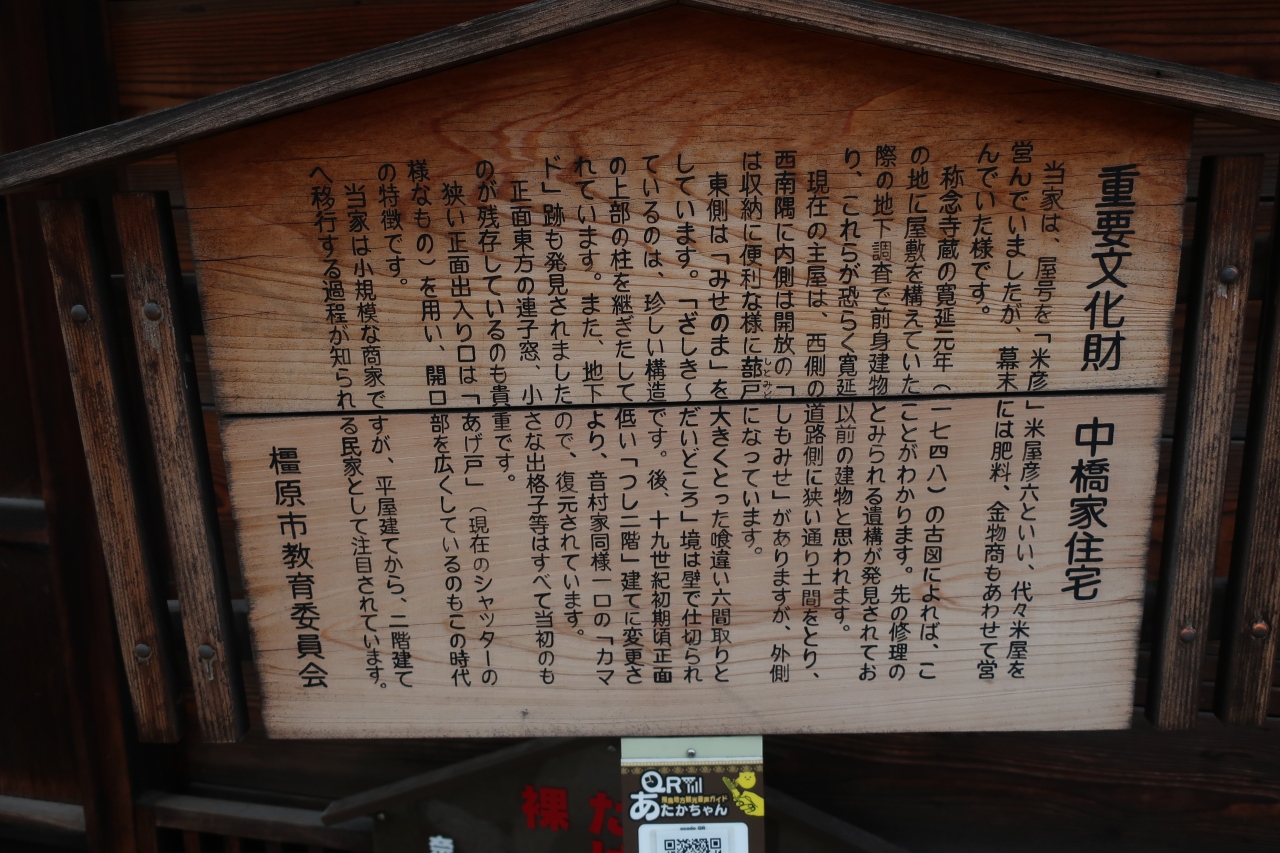 重要文化財 中橋家住宅
当家は、屋号を「米彦」米屋彦六といい、代々米屋を
営んでいましたが、幕末には肥料、金物商もあわせて営
んでいた様です。
称念寺蔵の寛延元年（一七四八）の古図によれば、こ
の地に屋敷を構えていたことがわかります。先の修理の
際の地下調査で前身建物とみられる遺構が発見されてお
り、これらが恐らく寛延以前の建物と思われます。
現在の主屋は、西側の道路側に狭い通り土間をとり、
西南隅に内側は開放の「しもみせ」がありますが、外側
は収納に便利な様に蔀戸になっています。
しとみど
東側は「みせのま」を大きくとった喰違い六間取りと
しています。「ざしき～だいどころ」境は壁で仕切られ
ているのは、珍しい構造です。後、十九世紀初期頃正面
の上部の柱を継ぎたして低い「つし二階」建てに変更さ
れています。また、地下より、音村家同様一口の「カマ
ド」跡も発見されましたので、復元されています。
正面東方の連子窓、小さな出格子等はすべて当初のも
のが残存しているのも貴重です。
狭い正面出入り口は「あげ戸」（現在のシャッターの
様なもの）を用い、開口部を広くしているのもこの時代
の特徴です。
当家は小規模な商家ですが、平屋建てから、二階建て
へ移行する過程が知られる民家として注目されています。
橿原市教育委員会
QR
飛鳥地方観光音声ガイド
あたかちゃん
裸
た